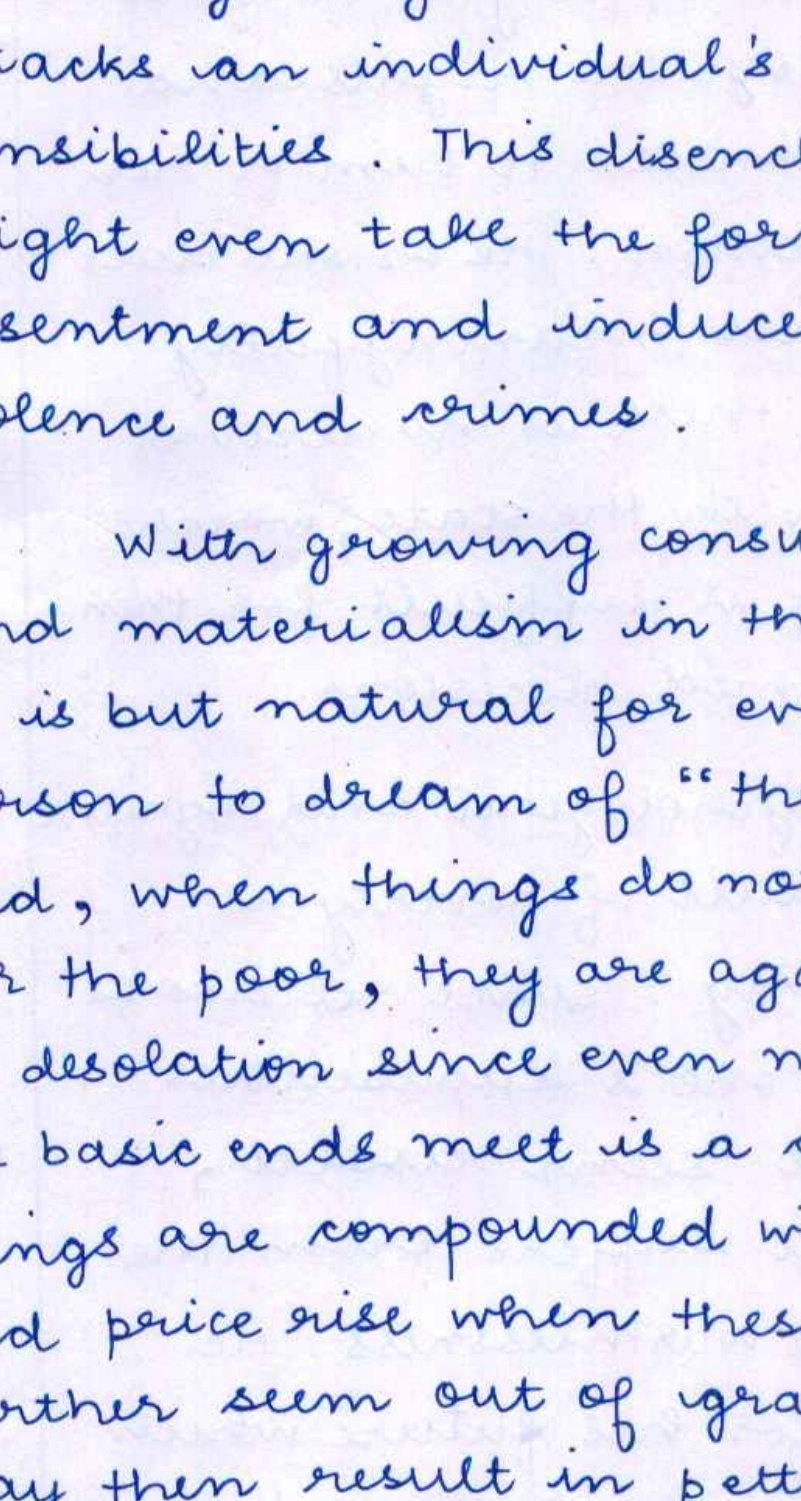 acks an individual's
nsibilities. This disench
ight even take the for
sentment and induce
olence and crimes.
With growing consu
nd materialism in th
is but natural for ev
erson to dream of "the
nd, when things do not
r the poor, they are aga
desolation since even m
basic ends meet is a
ings are compounded wi
nd price rise when thes
urther seem out of gra
ay then result in pett